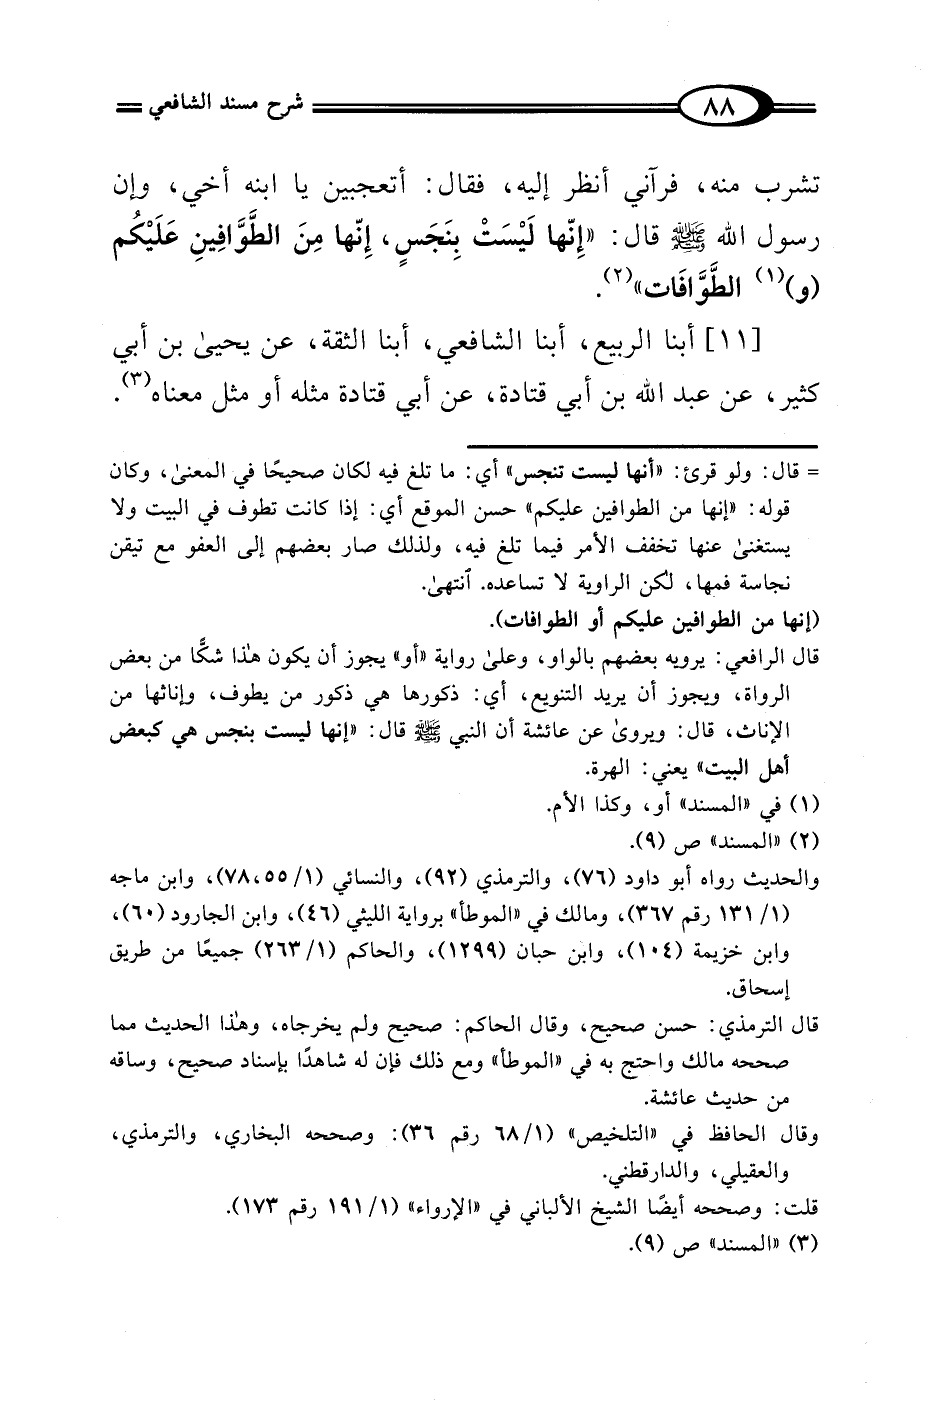 شرح مسند الشافعي
٨٨
تشرب منه، فرآني أنظر إليه، فقال: أتعجبين يا ابنه أخي، وإن
رسول الله ﷺ قال: «إِنَّها لَيْسَتْ بِنَجَسٍ، إِنَّها مِنَ الطَّوَّافِينِ عَلَيْكُم
(و)(١) الطَّوَّافَات»(٢).
[١١] أبنا الربيع، أبنا الشافعي، أبنا الثقة، عن يحيىٰ بن أبي
كثير، عن عبد الله بن أبي قتادة، عن أبي قتادة مثله أو مثل معناه(٣).
= قال: ولو قرئ: «أنها ليست تنجس» أي: ما تلغ فيه لكان صحيحًا في المعنىٰ، وكان
قوله: «إنها من الطوافين عليكم» حسن الموقع أي: إذا كانت تطوف في البيت ولا
يستغنىٰ عنها تخفف الأمر فيما تلغ فيه، ولذلك صار بعضهم إلى العفو مع تيقن
نجاسة فمها، لكن الراوية لا تساعده. ٱنتهىٰ.
(إنها من الطوافين عليكم أو الطوافات).
قال الرافعي: يرويه بعضهم بالواو، وعلىٰ رواية «أو» يجوز أن يكون هٰذا شكًّا من بعض
الرواة، ويجوز أن يريد التنويع، أي: ذكورها هي ذكور من يطوف، وإناثها من
الإناث، قال: ويروىٰ عن عائشة أن النبي ﷺ قال: «إنها ليست بنجس هي كبعض
أهل البيت» يعني: الهرة.
(١) في «المسند» أو، وكذا الأم.
(٢) «المسند» ص (٩).
والحديث رواه أبو داود (٧٦)، والترمذي (٩٢)، والنسائي (١/ ٥٥،٧٨)، وابن ماجه
(١/ ١٣١ رقم ٣٦٧)، ومالك في «الموطأ» برواية الليثي (٤٦)، وابن الجارود (٦٠)،
وابن خزيمة (١٠٤)، وابن حبان (١٢٩٩)، والحاكم (١/ ٢٦٣) جميعًا من طريق
إسحاق.
قال الترمذي: حسن صحيح، وقال الحاكم: صحيح ولم يخرجاه، وهٰذا الحديث مما
صححه مالك واحتج به في «الموطأ» ومع ذلك فإن له شاهدًا بإسناد صحيح، وساقه
من حديث عائشة.
وقال الحافظ في «التلخيص» (١/ ٦٨ رقم ٣٦): وصححه البخاري، والترمذي،
والعقيلي، والدارقطني.
قلت: وصححه أيضًا الشيخ الألباني في «الإرواء» (١/ ١٩١ رقم ١٧٣).
(٣) «المسند» ص (٩).